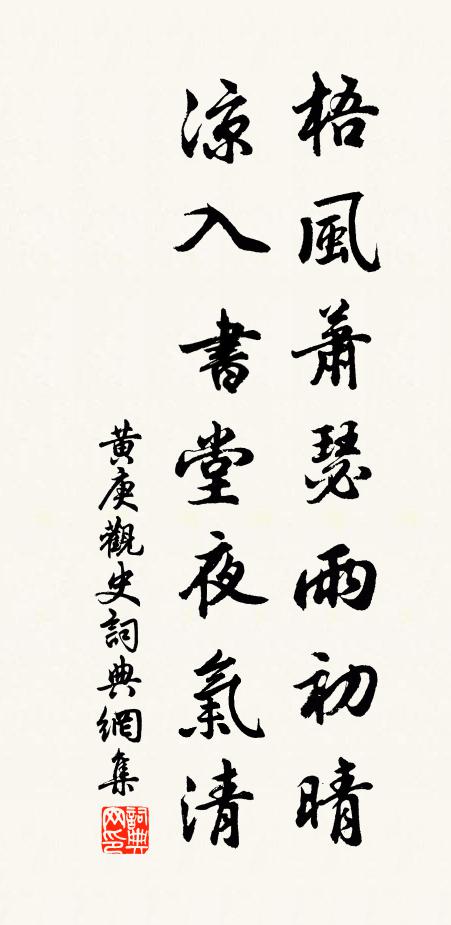 梧風蕭瑟雨初晴
涼入書堂夜氣清
黃庚觀史詞典網集
詞典網印